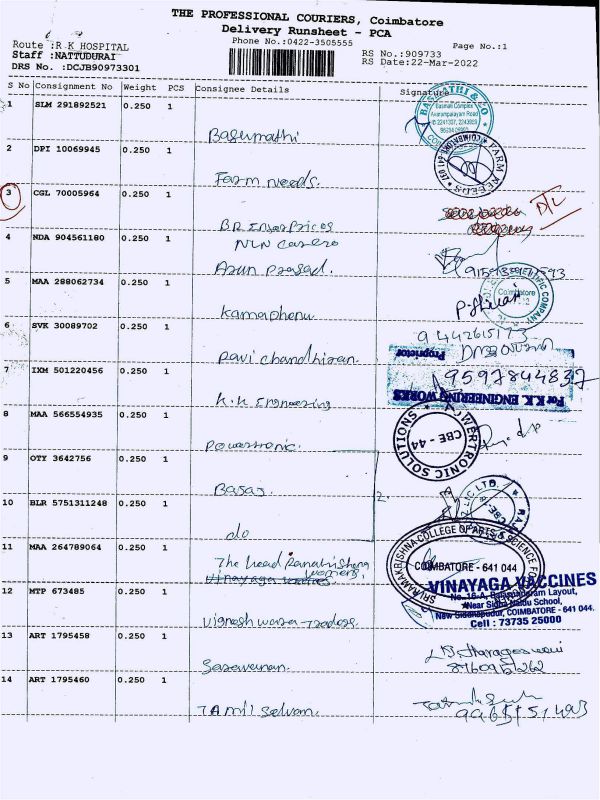 THE PROFESSIONAL COURIERS, Coimbatore
Delivery Runsheet - PCA
Phone No.:0422-3505555
Page No.:1
Route :R K HOSPITAL
RS No.:909733
Staff :NATTUDURAI
RS Date:22-Mar-2022
DRS No. :DCJB90973301
S No Consignment No Weight PCS Consignee Details Signature
1 SLM 291892521 0.250 1
Basumathi
2 DPI 10069945 0.250 1
Farm needs.
3 CGL 70005964 0.250 1
BR Enterprices
4 NDA 904561180 0.250 1
Arun prasad.
5 MAA 288062734 0.250 1
Kamaphenu
6 SVK 30089702 0.250 1
Ravi chandhiran.
9442615173
Proprietor
7 IXM 501220456 0.250 1
9597844837
K.K Engineering
For K.K. ENGINEERING WORKS
8 MAA 566554935 0.250 1
Powertronic.
POWERTRONIC SOLUTIONS
CBE - 44
9 OTY 3642756 0.250 1
10 BLR 5751311248 0.250 1
do
11 MAA 264789064 0.250 1
The head Ramakrishna
womens,
SRI RAMAKRISHNA COLLEGE OF ARTS & SCIENCE FOR
COIMBATORE - 641 044
VINAYAGA VACCINES
12 MTP 673485 0.250 1
No. 16-A, Layout,
Near Sidha Naidu School,
New Siddhapudur, COIMBATORE - 641 044.
Cell : 73735 25000
Vignesh wara Traders.
13 ART 1795458 0.250 1
Saravanan.
14 ART 1795460 0.250 1
TAmil Selvam.